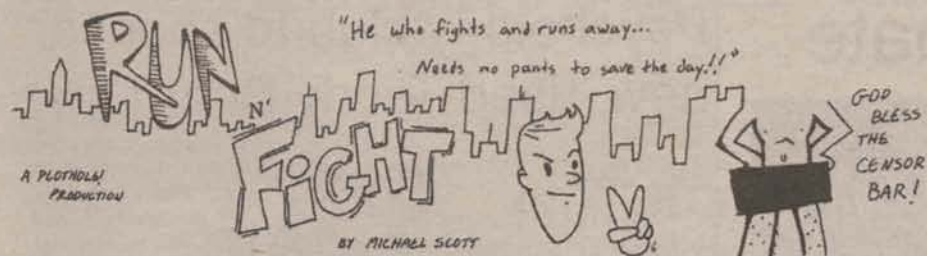 RUN
N'
FIGHT
"He who fights and runs away...
Needs no pants to save the day!!"
A PLOTHOLE!
PRODUCTION
BY MICHAEL SCOTT
GOD
BLESS
THE
CENSOR
BAR!